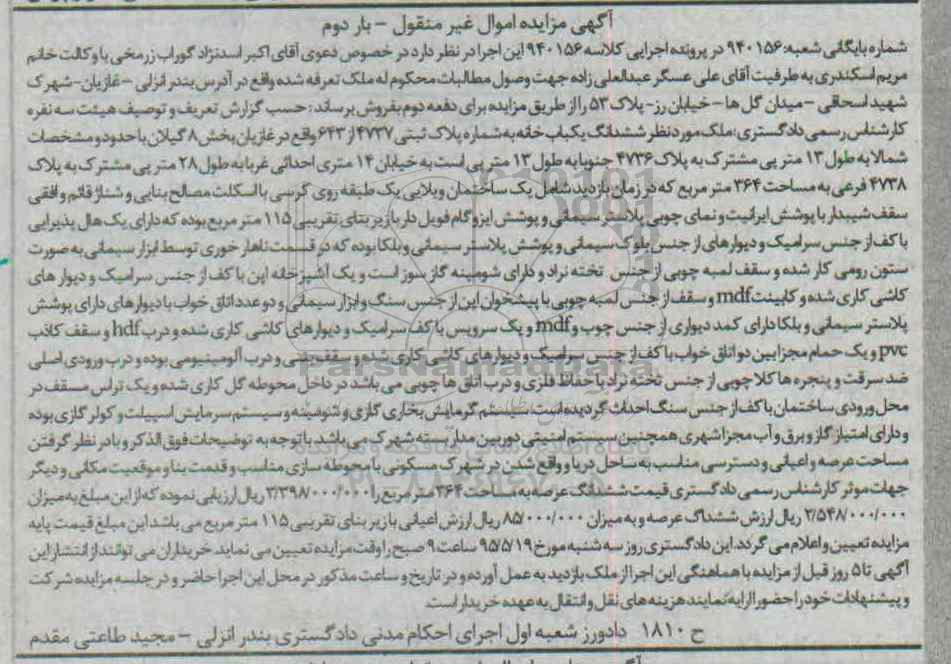 آگهی مزایده اموال غیر منقول - بار دوم
شماره بایگانی شعبه: ۹۴۰۱۵۶ در پرونده اجرایی کلاسه ۹۴۰۱۵۶ این اجرا در نظر دارد در خصوص دعوی آقای اکبر اسدنژاد گوراب زرمخی با وکالت خانم
مریم اسکندری به طرفیت آقای علی عسگر عبدالعلی زاده جهت وصول مطالبات محکوم له ملک تعرفه شده واقع در آدرس بندر انزلی - غازیان - شهرک
شهید اسحاقی - میدان گل ها - خیابان رز - پلاک ۵۳ را از طریق مزایده برای دفعه دوم بفروش برساند: حسب گزارش تعریف و توصیف هیئت سه نفره
کارشناس رسمی دادگستری: ملک مورد نظر ششدانگ یکباب خانه به شماره پلاک ثبتی ۴۷۳۷ از ۶۴۳ واقع در غازیان بخش ۸ گیلان با حدود و مشخصات
شمالا به طول ۱۳ متر پی مشترک به پلاک ۴۷۳۶ جنوبا به طول ۱۳ متر پی است به خیابان ۱۴ متری احداثی غربا به طول ۲۸ متر پی مشترک به پلاک
۴۷۳۸ فرعی به مساحت ۳۶۴ متر مربع که در زمان بازدید شامل یک ساختمان ویلایی یک طبقه روی کرسی با اسکلت مصالح بنایی و شناژ قائم و افقی
سقف شیبدار با پوشش ایرانیت و نمای چوبی پلاستر سیمانی و پوشش ایزوگام فویل دار با زیر بنای تقریبی ۱۱۵ متر مربع بوده که دارای یک هال پذیرایی
با کف از جنس سرامیک و دیوارهای از جنس بلوک سیمانی و پوشش پلاستر سیمانی و بلکا بوده که در قسمت ناهار خوری توسط ابزار سیمانی به صورت
ستون رومی کار شده و سقف لمبه چوبی از جنس تخته نراد و دارای شومینه گاز سوز است و یک آشپزخانه اپن با کف از جنس سرامیک و دیوار های
کاشی کاری شده و کابینت mdf و سقف از جنس لمبه چوبی با پیشخوان اپن از جنس سنگ و ابزار سیمانی و دو عدد اتاق خواب با دیوار های دارای پوشش
پلاستر سیمانی و بلکا دارای کمد دیواری از جنس چوب و mdf و یک سرویس با کف سرامیک و دیوار های کاشی کاری شده و درب hdf و سقف کاذب
pvc و یک حمام مجزا بین دو اتاق خواب با کف از جنس سرامیک و دیوار های کاشی کاری شده و سقف بتنی و درب آلومینیومی بوده و درب ورودی اصلی
ضد سرقت و پنجره ها کلا چوبی از جنس تخته نراد با حفاظ فلزی و درب اتاق ها چوبی می باشد در داخل محوطه گل کاری شده و یک تراس مسقف در
محل ورودی ساختمان با کف از جنس سنگ احداث گردیده است. سیستم گرمایش بخاری گازی و شومینه و سیستم سرمایش اسپیلت و کولر گازی بوده
و دارای امتیاز گاز و برق و آب مجزا شهری همچنین سیستم امنیتی دوربین مدار بسته شهرک می باشد با توجه به توضیحات فوق الذکر و با در نظر گرفتن
مساحت عرصه و اعیانی و دسترسی مناسب به ساحل دریا و واقع شدن در شهرک مسکونی با محوطه سازی مناسب و قدمت بنا و موقعیت مکانی و دیگر
جهات موثر کارشناس رسمی دادگستری قیمت ششدانگ عرصه به مساحت ۳۶۴ متر مربع را ۳/۳۹۸/۰۰۰/۰۰۰ ریال ارزیابی نموده که از این مبلغ به میزان
۲/۵۴۸/۰۰۰/۰۰۰ ریال ارزش ششداگ عرصه و به میزان ۸۵/۰۰۰/۰۰۰ ریال ارزش اعیانی با زیر بنای تقریبی ۱۱۵ متر مربع می باشد این مبلغ قیمت پایه
مزایده تعیین و اعلام می گردد. این دادگستری روز سه شنبه مورخ ۹۵/۵/۱۹ ساعت ۹ صبح را وقت مزایده تعیین می نماید خریداران می توانند از انتشار این
آگهی تا ۵ روز قبل از مزایده با هماهنگی این اجرا از ملک بازدید به عمل آورده و در تاریخ و ساعت مذکور در محل این اجرا حاضر و در جلسه مزایده شرکت
و پیشنهادات خود را حضورا ارایه نمایند هزینه های نقل و انتقال به عهده خریدار است.
ح ۱۸۱۰ دادورز شعبه اول اجرای احکام مدنی دادگستری بندر انزلی - مجید طاعتی مقدم